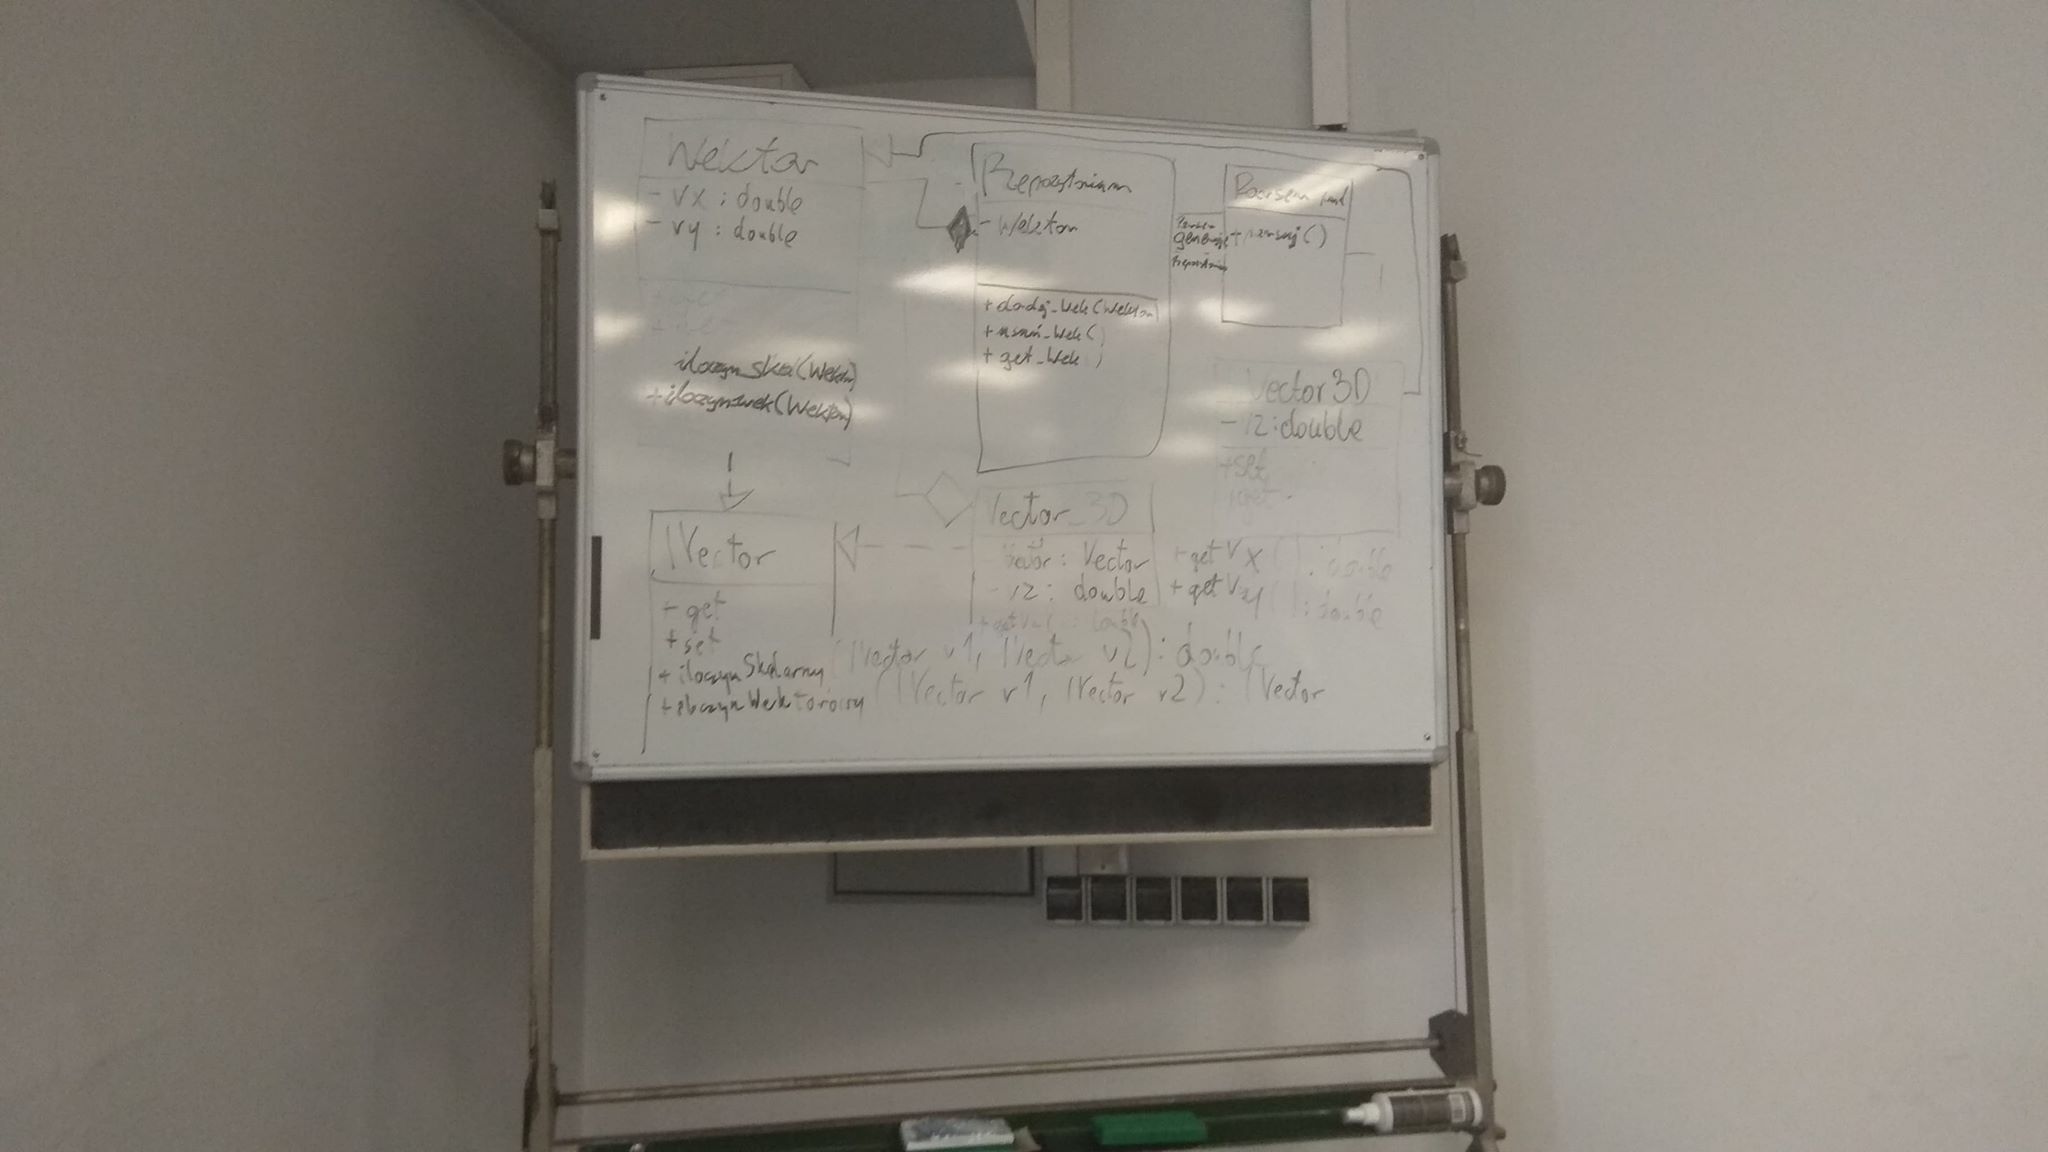 Wektor
- vx : double
- vy : double
+ get
+ set
iloczyn_ska(Wektor)
+ iloczynwek(Wektor)
Repozytorium
- Wektor
+ dodaj_Wek(Wektor)
+ usuń_Wek()
+ get_Wek()
Parser
generuje
Repozytorium
+ parsuj()
Vector3D
- vz : double
+ set
+ get
IVector
+ get
+ set
+ iloczynSkalarny (IVector v1, IVector v2) : double
+ iloczynWektorowy (IVector v1, IVector v2) : IVector
Vector_3D
: Vector
- vz : double
+ getVx() : double
+ getVy() : double